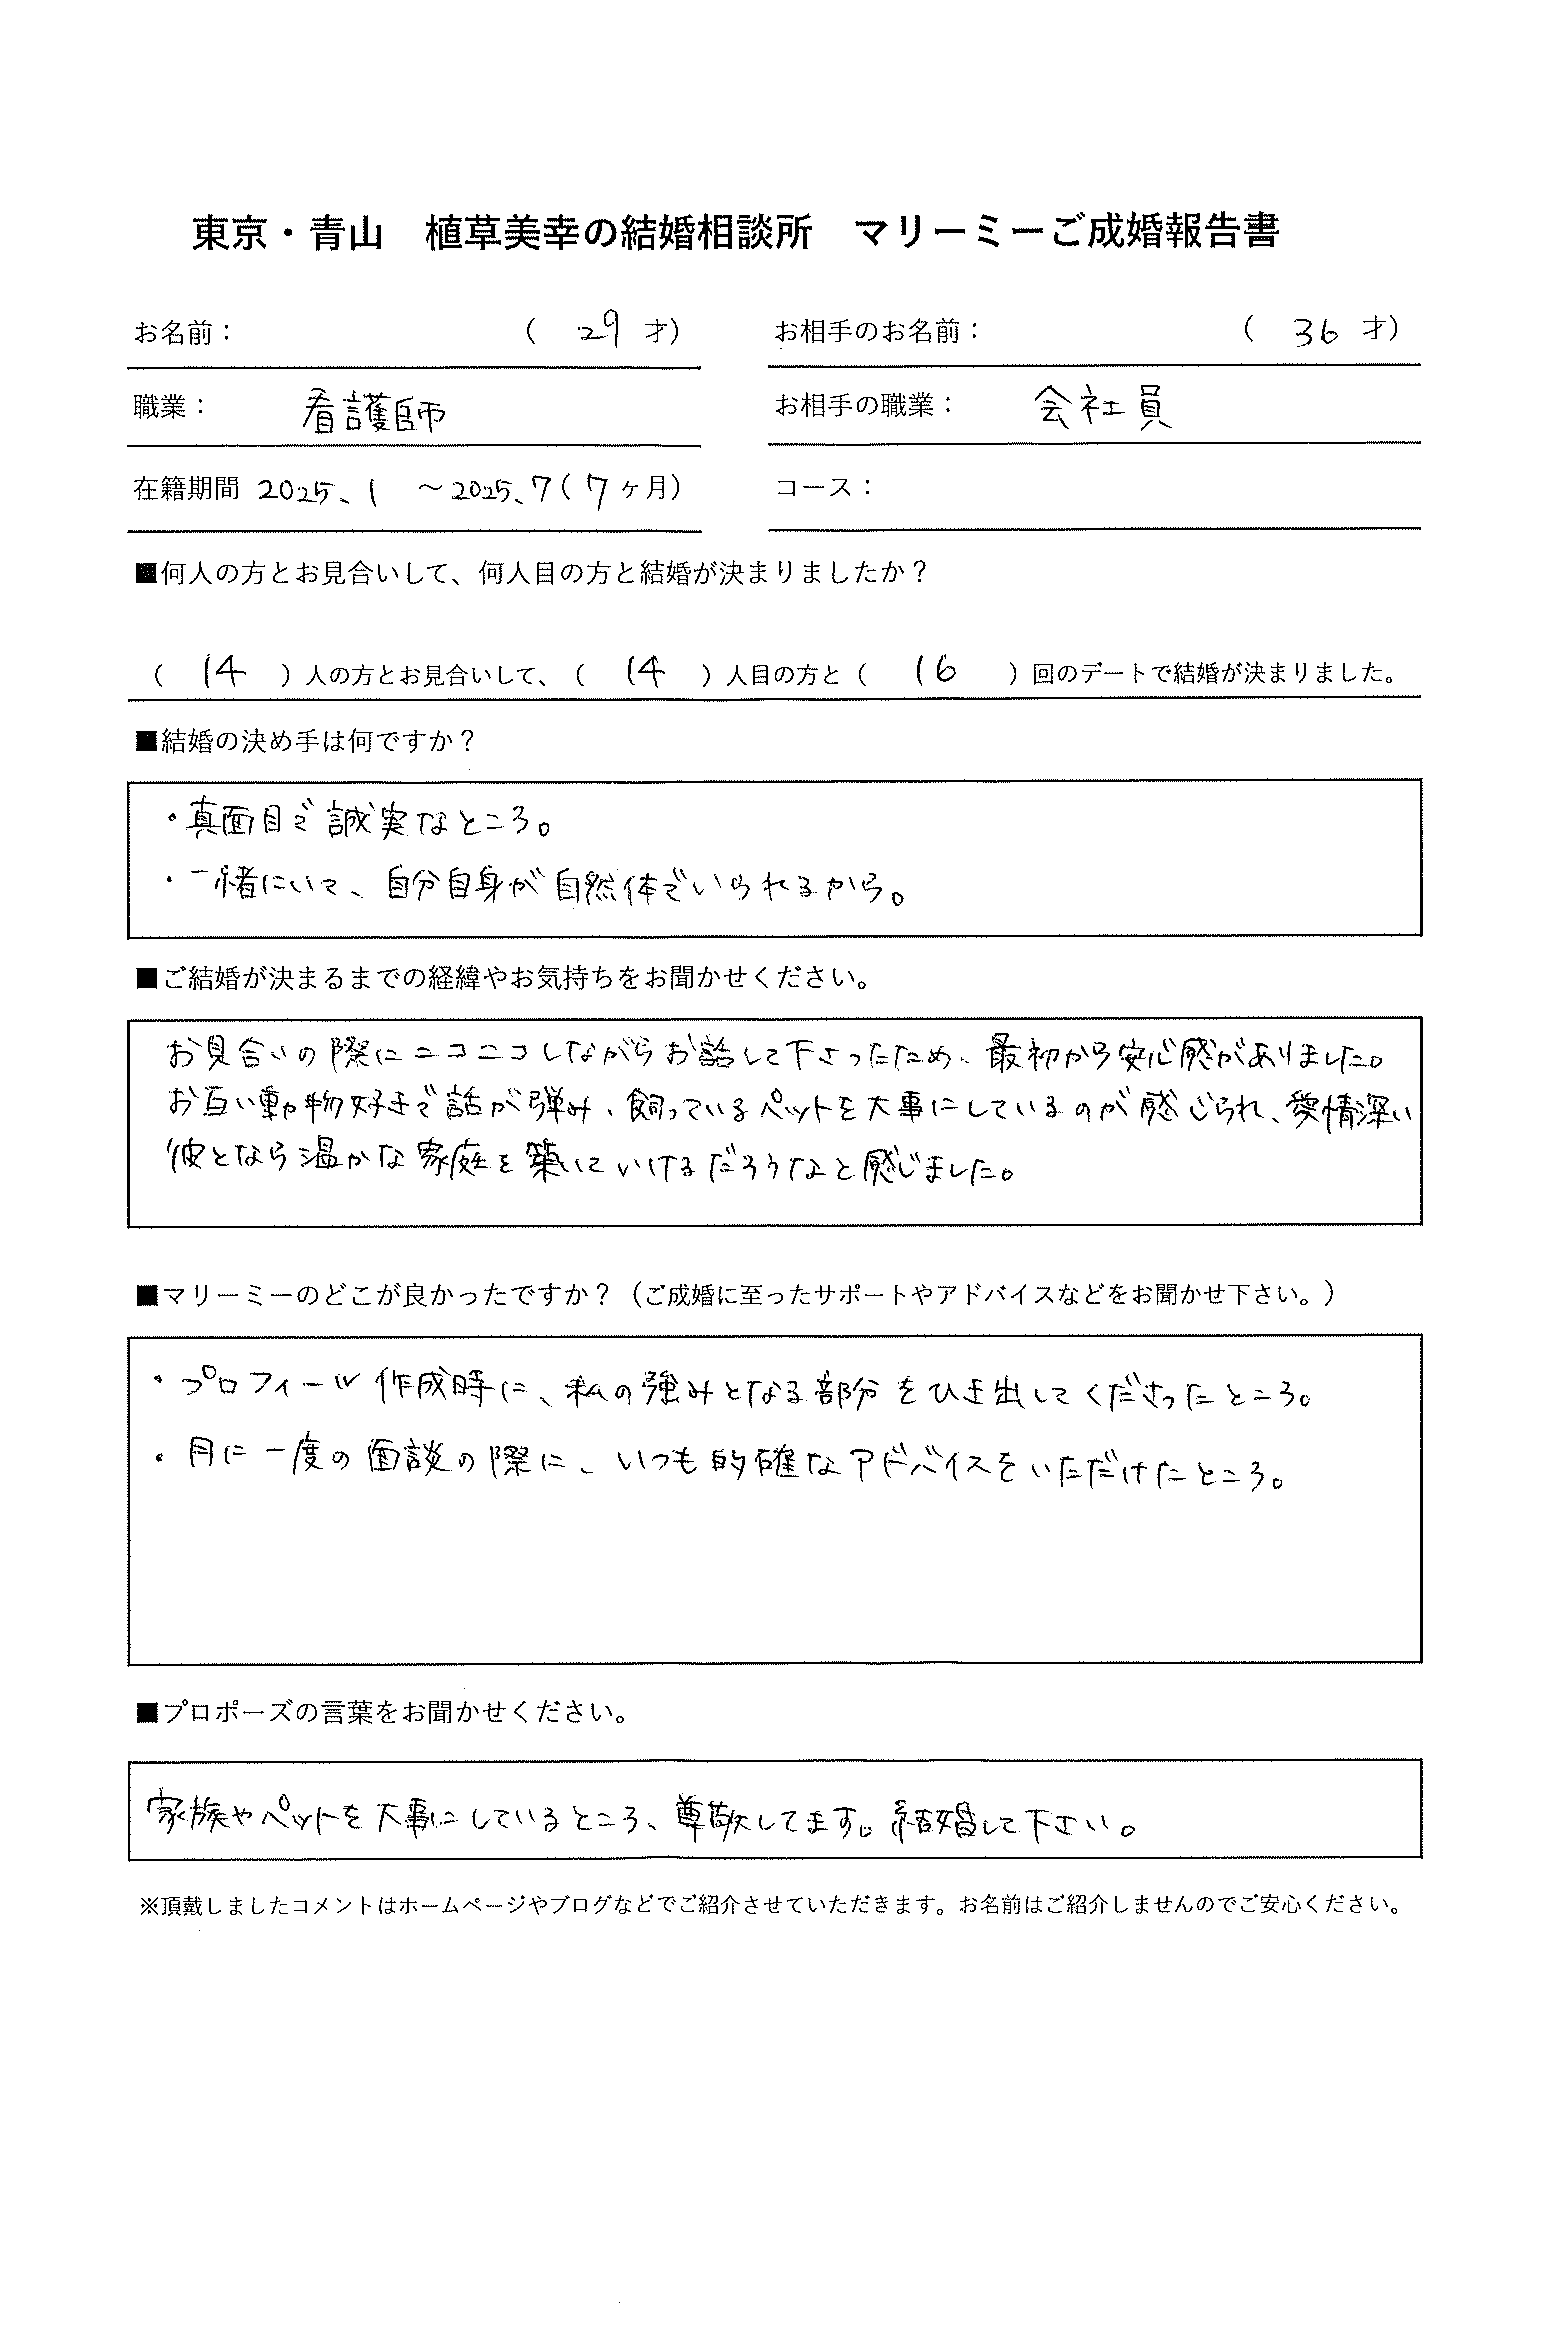 東京・青山　植草美幸の結婚相談所　マリーミーご成婚報告書
お名前：　（ 29 才）　お相手のお名前：　（ 36 才）
職業：　看護師　お相手の職業：　会社員
在籍期間 2025、1 ～2025、7（ 7 ヶ月）　コース：
■何人の方とお見合いして、何人目の方と結婚が決まりましたか？
（ 14 ）人の方とお見合いして、（ 14 ）人目の方と（ 16 ）回のデートで結婚が決まりました。
■結婚の決め手は何ですか？
・真面目で誠実なところ。
・一緒にいて、自分自身が自然体でいられるから。
■ご結婚が決まるまでの経緯やお気持ちをお聞かせください。
お見合いの際にニコニコしながらお話して下さったため、最初から安心感がありました。
お互い動物好きで話が弾み、飼っているペットを大事にしているのが感じられ、愛情深い
彼となら温かな家庭を築いていけるだろうなと感じました。
■マリーミーのどこが良かったですか？（ご成婚に至ったサポートやアドバイスなどをお聞かせ下さい。）
・プロフィール作成時に、私の強みとなる部分をひき出してくださったところ。
・月に一度の面談の際に、いつも的確なアドバイスをいただけたところ。
■プロポーズの言葉をお聞かせください。
家族やペットを大事にしているところ、尊敬してます。結婚して下さい。
※頂戴しましたコメントはホームページやブログなどでご紹介させていただきます。お名前はご紹介しませんのでご安心ください。